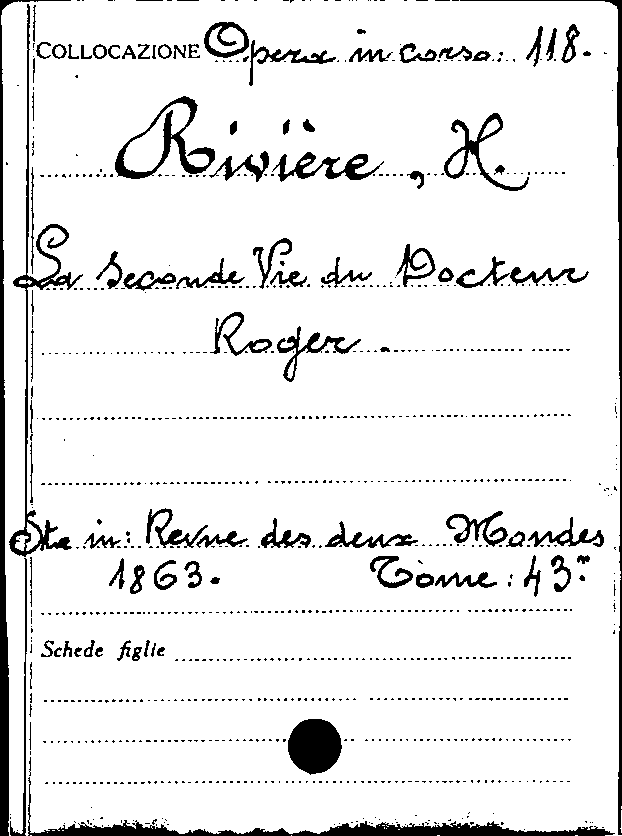 COLLOCAZIONE Opera in corso: 118.
Rivière, H.
La Seconde Vie du Docteur
Roger.
Sta in: Revue des deux Mondes
1863. Tome: 43.m
Schede figlie